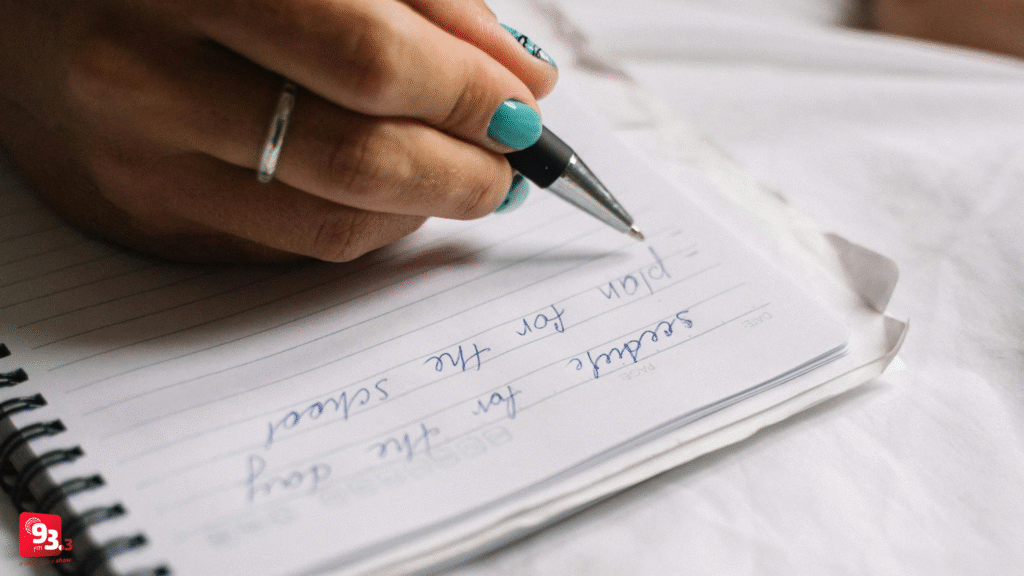 DATE
PAGE
seedule for the day
plan for the school
=
93.3
fm